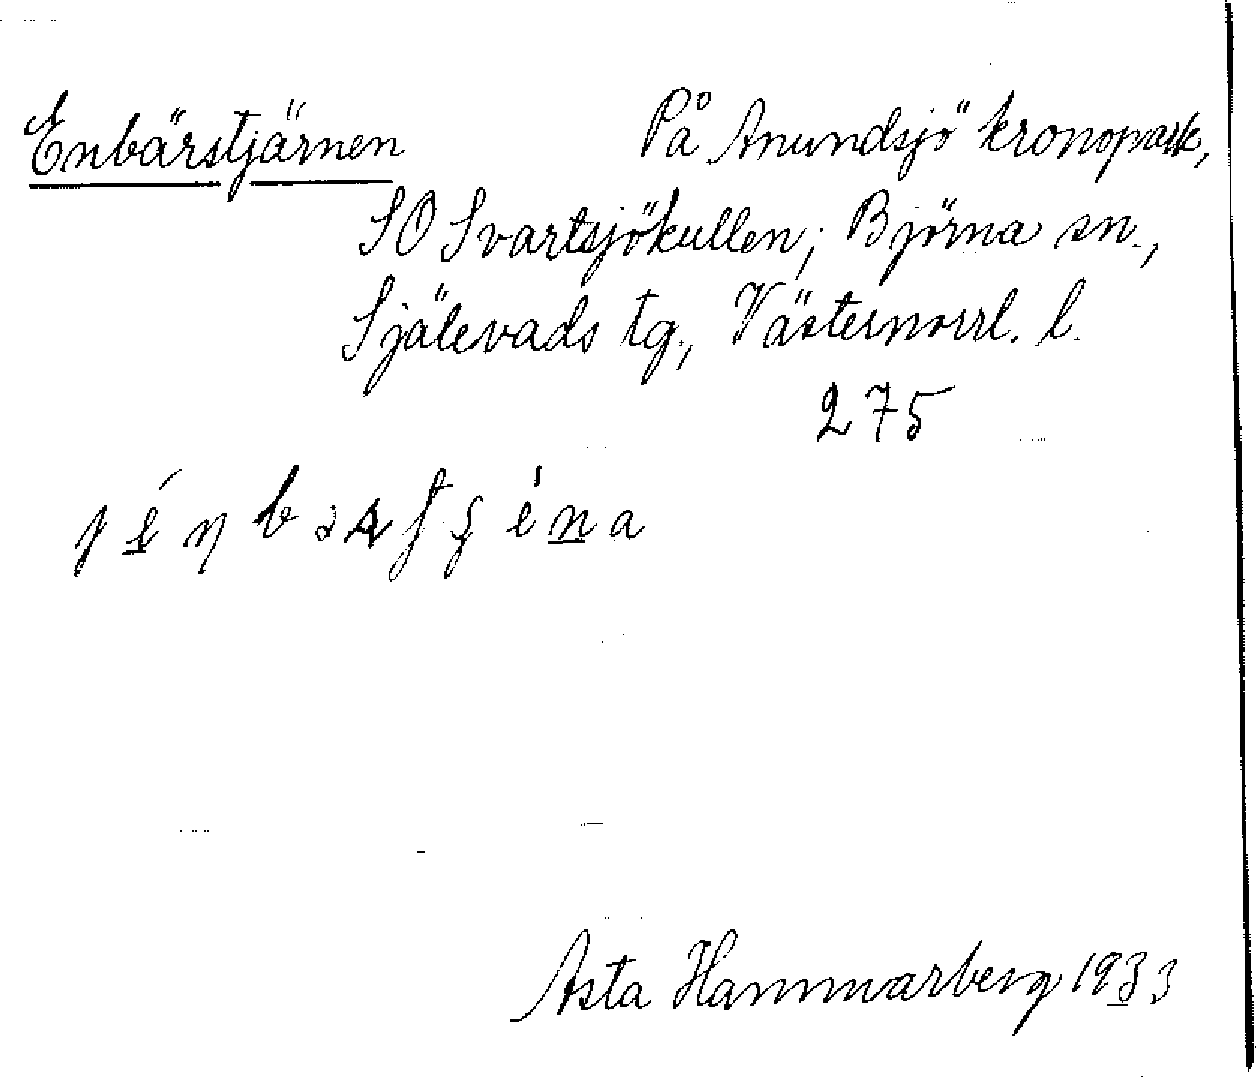 Enbärstjärnen
På Anundsjö kronopark,
SO Svartsjökullen; Björna sn.,
Själevads tg., Västernorrl. l.
275
Asta Hammarberg 1933